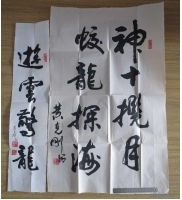 神十攬月
蛟龍探海
遊雲驚龍